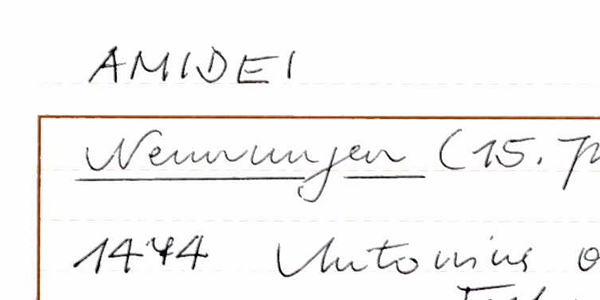 AMIDEI
Nennungen (15.
1444 Antonius